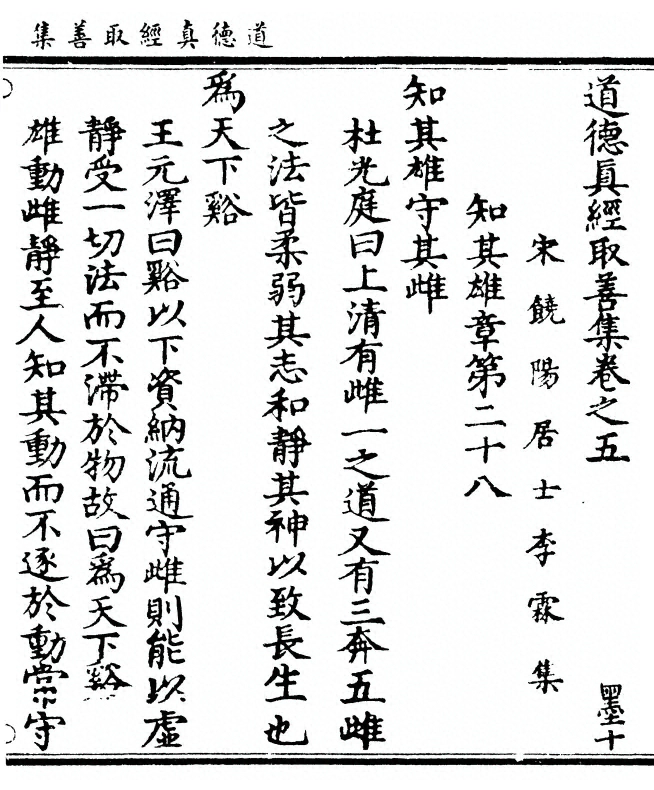 道德真經取善集
道德眞經取善集卷之五 墨十
宋饒陽居士李霖集
知其雄章第二十八
知其雄守其雌
杜光庭曰上清有雌一之道又有三奔五雌
之法皆柔弱其志和靜其神以致長生也
爲天下谿
王元澤曰谿以下資納流通守雌則能以虛
靜受一切法而不滯於物故曰爲天下谿
雄動雌靜至人知其動而不逐於動常守